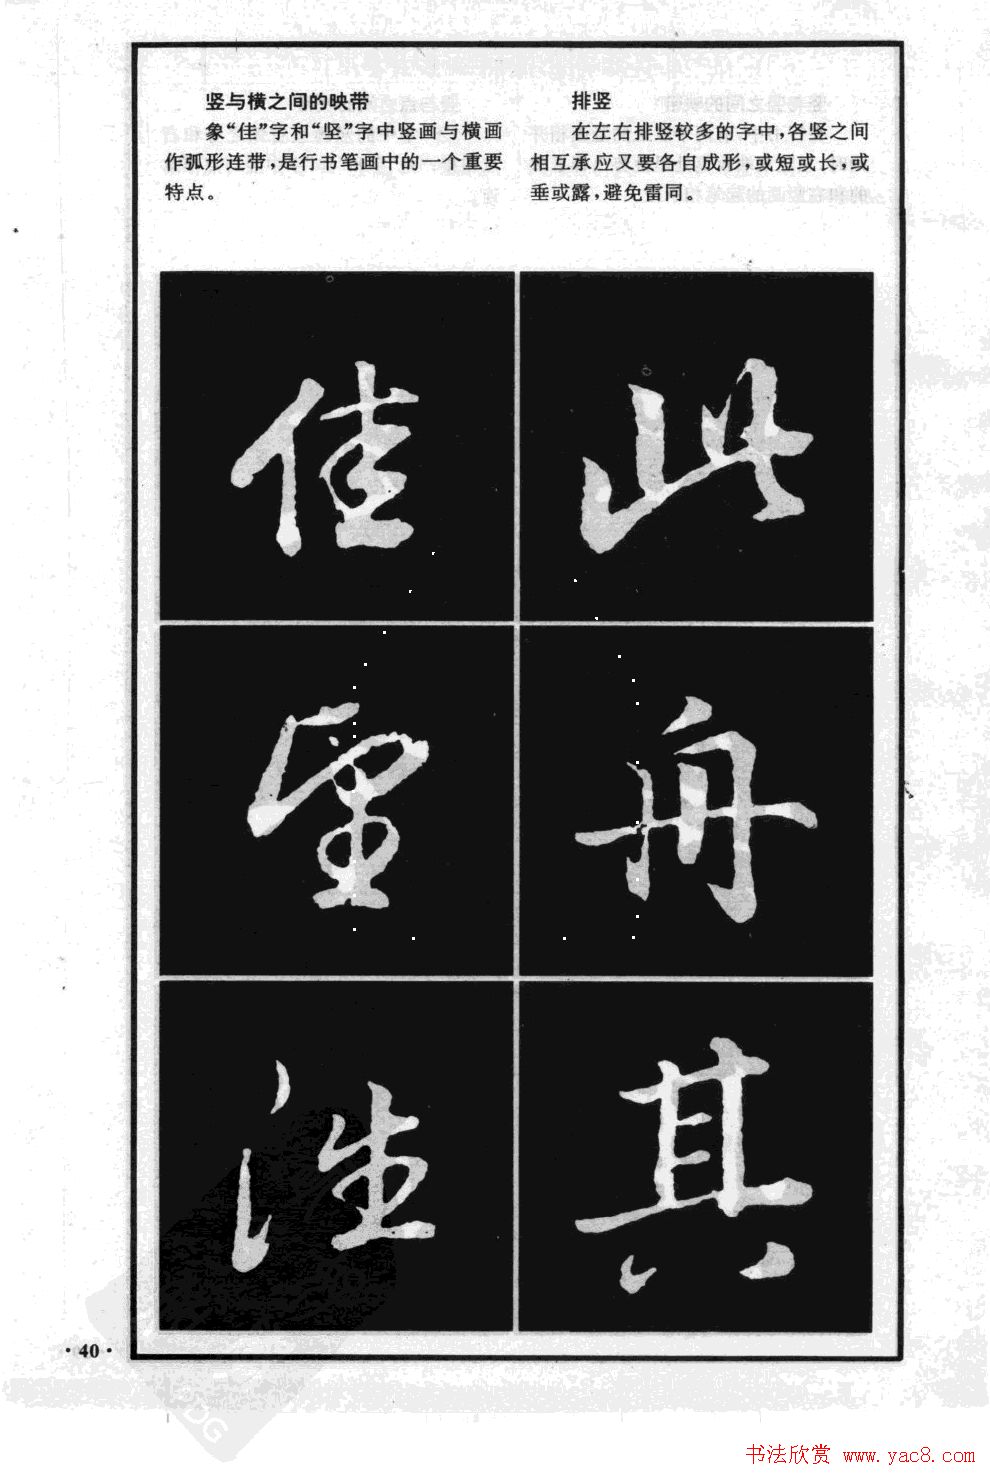 竖与横之间的映带
象“佳”字和“竖”字中竖画与横画
作弧形连带,是行书笔画中的一个重要
特点。
排竖
在左右排竖较多的字中,各竖之间
相互承应又要各自成形,或短或长,或
垂或露,避免雷同。
佳
此
舟
其
·40·
书法欣赏 www.yac8.com